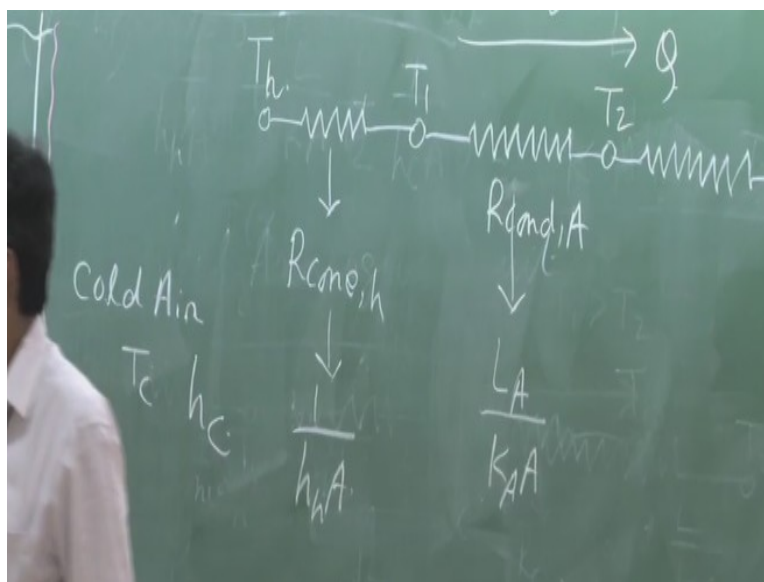 Q
T_h T_1 T_2
R_conv,h R_cond,A
Cold Air
T_c h_c
1/(h_h A) L_A/(K_A A)